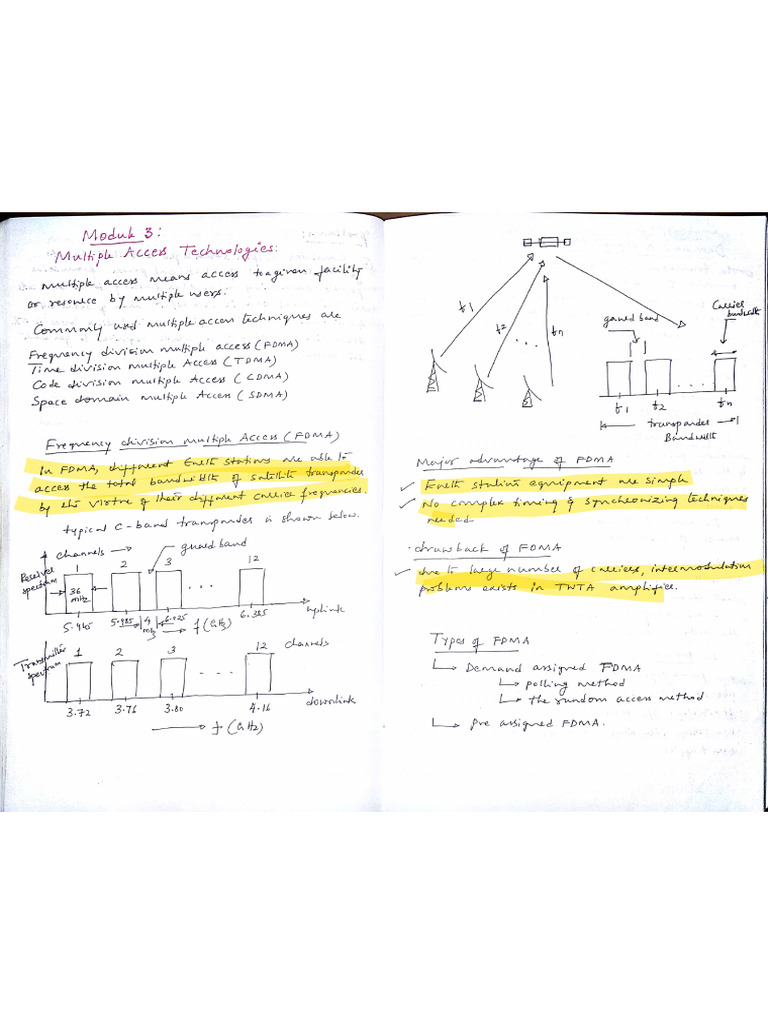 Module 3:
Multiple Access Technologies:
Multiple access means access to a given facility
or resource by multiple users.
Commonly used multiple access techniques are
Frequency division multiple access (FDMA)
Time division multiple Access (TDMA)
Code division multiple Access (CDMA)
Space domain multiple Access (SDMA)
Frequency division multiple Access (FDMA)
In FDMA, different Earth Stations are able to
access the total bandwidth of satellite transponder
by the virtue of their different carrier frequencies.
typical C-band transponder is shown below.
channels →
guard band
Receiver
spectrum
1 2 3 ... 12
36
MHz
5.945 5.985 4 MHz 6.025 6.385
→ f (GHz)
uplink
channels
Transmitter
spectrum
1 2 3 ... 12
3.72 3.76 3.80 4.16
downlink
→ f (GHz)
f1
f2
...
fn
guard band
Carrier
bandwidth
...
f1 f2 fn
transponder
Bandwidth
Major advantage of FDMA
✓ Earth station equipment are simple
✓ No complex timing & synchronizing techniques
needed
drawback of FDMA
✓ due to large number of carriers, intermodulation
problems exists in TWTA amplifier.
Types of FDMA
↳ Demand assigned FDMA
↳ polling method
↳ the random access method
↳ Pre assigned FDMA.